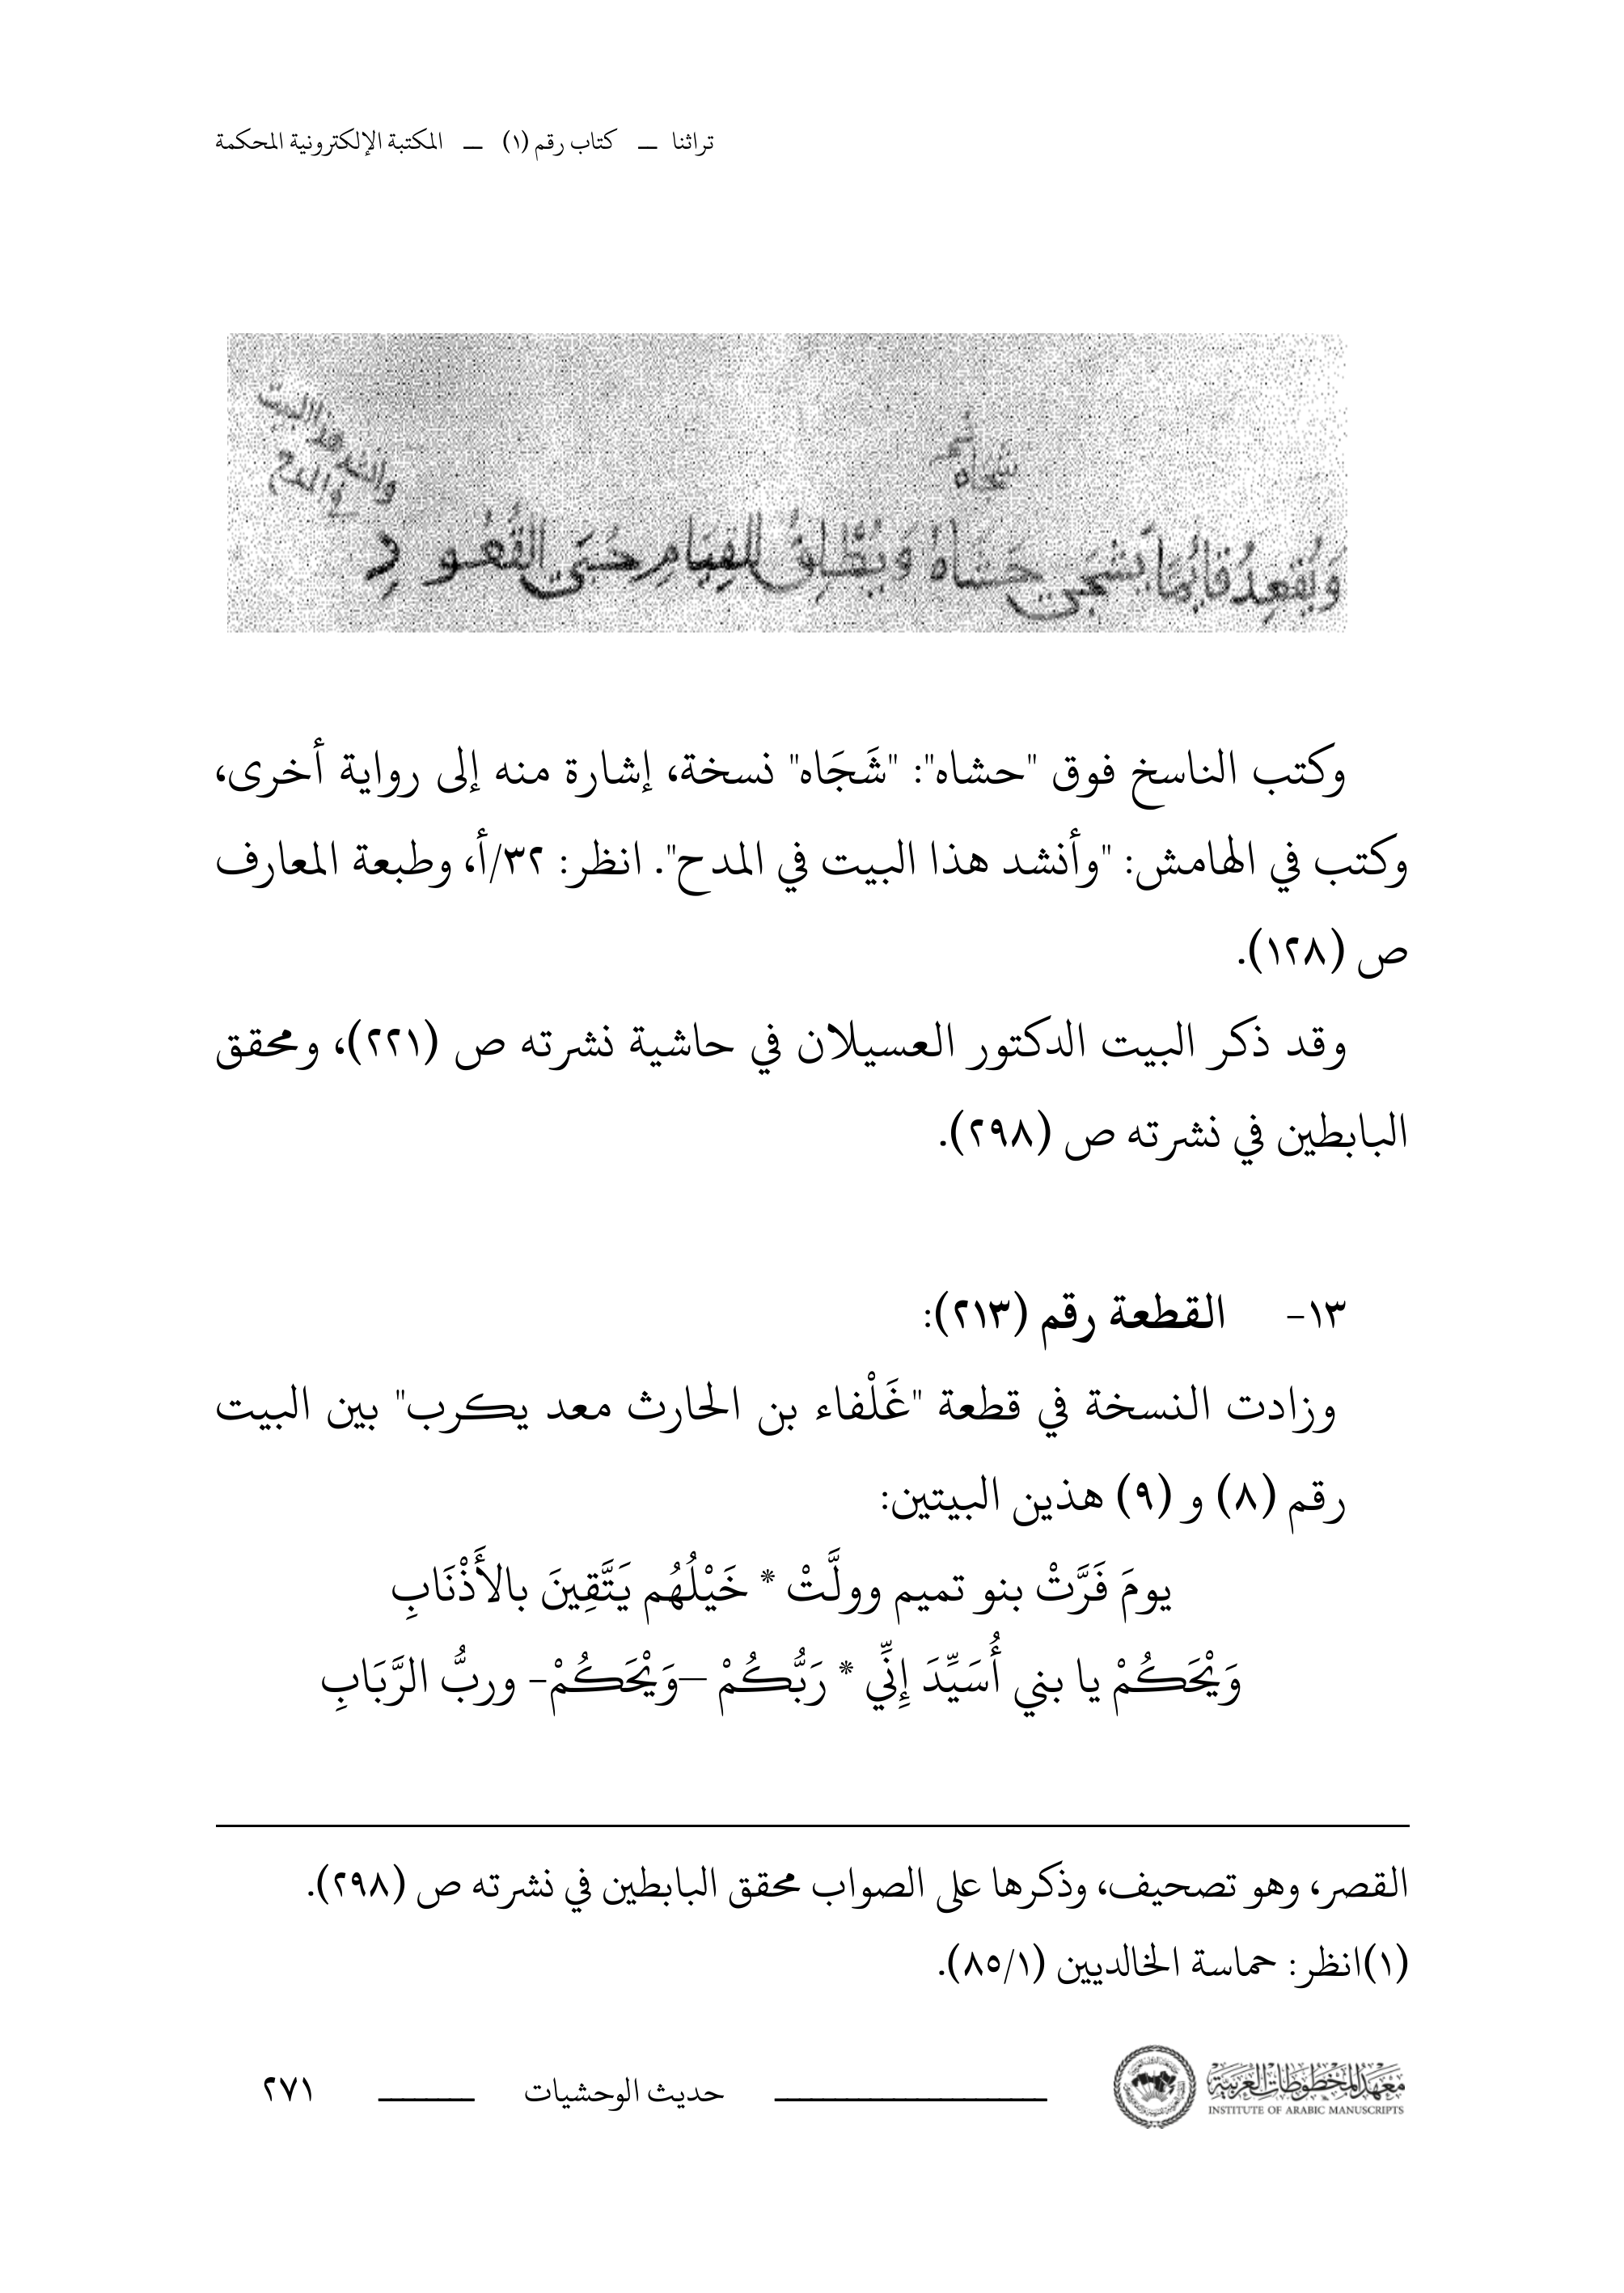 تراثنا ــ كتاب رقم (١) ــ المكتبة الإلكترونية المحكمة
وأنشد هذا البيت
في المدح
شَجَاه
وَيُقعِدُ قَائِمًا يَشجَى حَشَاهُ وَيُطْلِقُ لِلقِيَامِ حُبَى القُعُودِ
وكتب الناسخ فوق "حشاه": "شَجَاه" نسخة، إشارة منه إلى رواية أخرى،
وكتب في الهامش: "وأنشد هذا البيت في المدح". انظر: ٣٢/أ، وطبعة المعارف
ص (١٢٨).
وقد ذكر البيت الدكتور العسيلان في حاشية نشرته ص (٢٢١)، ومحقق
البابطين في نشرته ص (٢٩٨).
١٣- القطعة رقم (٢١٣):
وزادت النسخة في قطعة "غَلْفاء بن الحارث معد يكرب" بين البيت
رقم (٨) و (٩) هذين البيتين:
يومَ فَرَّتْ بنو تميم وولَّتْ * خَيْلُهُم يَتَّقِينَ بالأَذْنَابِ
وَيْحَكُمْ يا بني أُسَيِّدَ إِنِّي * رَبُّكُمْ –وَيْحَكُمْ- وربُّ الرَّبَابِ
القصر، وهو تصحيف، وذكرها على الصواب محقق البابطين في نشرته ص (٢٩٨).
(١)انظر: حماسة الخالديين (٨٥/١).
معهد المخطوطات العربية
INSTITUTE OF ARABIC MANUSCRIPTS
حديث الوحشيات
٢٧١